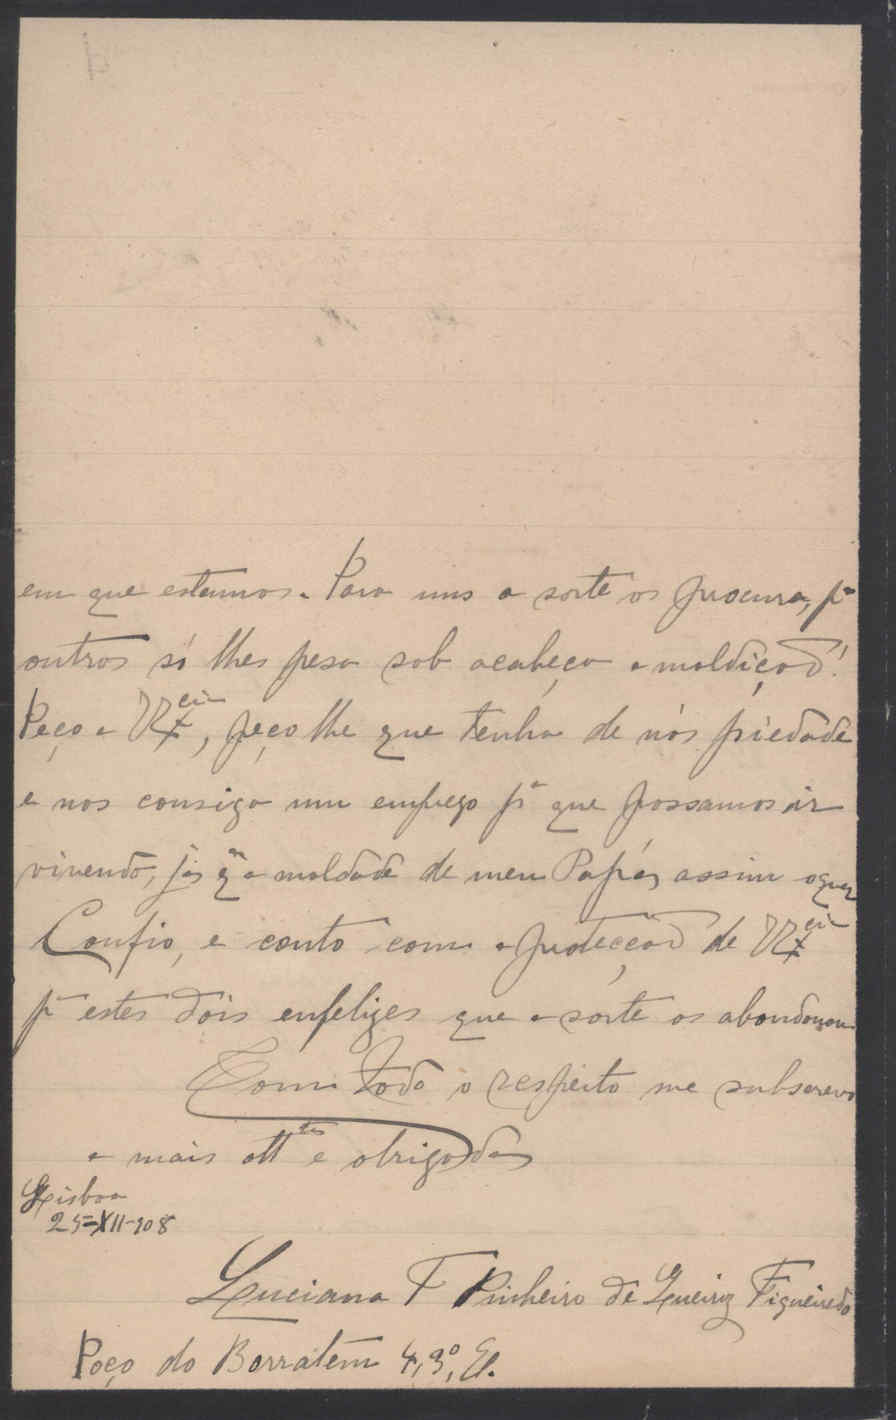 em que estamos. Para uns a sorte os procura, pª
outros só lhes pesa sob acabeça a maldiçaõ!
Peço a V Excia, peço lhe que tenha de nós piedade
e nos consiga um emprego pª que possamos ir
vivendo, já q̃ a maldade de meu Papá, assim oquer
Confio, e conto com a protecçaõ de V Excia
pª estes dois enfelizes que a sorte os abandonou
Com todo o respeito me subscrevo
a mais attta e obrigada
Lisboa
25-XII-908
Luciana F Pinheiro de Queiroz Figueiredo
Poço do Borratem 4, 3º, E.